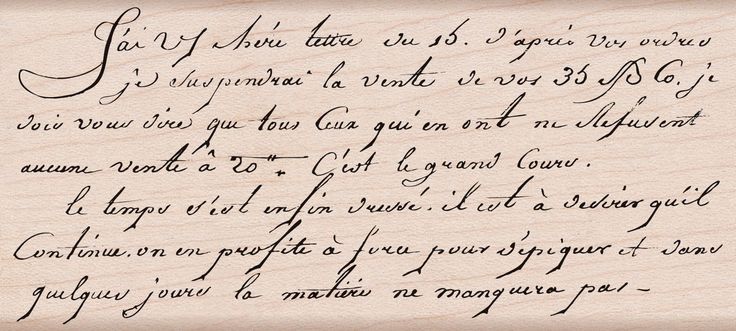 J'ai Vs chére lettre du 15. d'aprés vos ordres
je suspendrai la vente de vos 35 Co. je
dois vous dire que tous Ceux qui en ont ne Refusent
aucune vente à 20 C'est le grand Cours.
le temps s'est enfin dressé. il est à desirer qu'il
Continue. on en profite à force pour dépiquer et dans
quelques jours la matiére ne manquera pas -